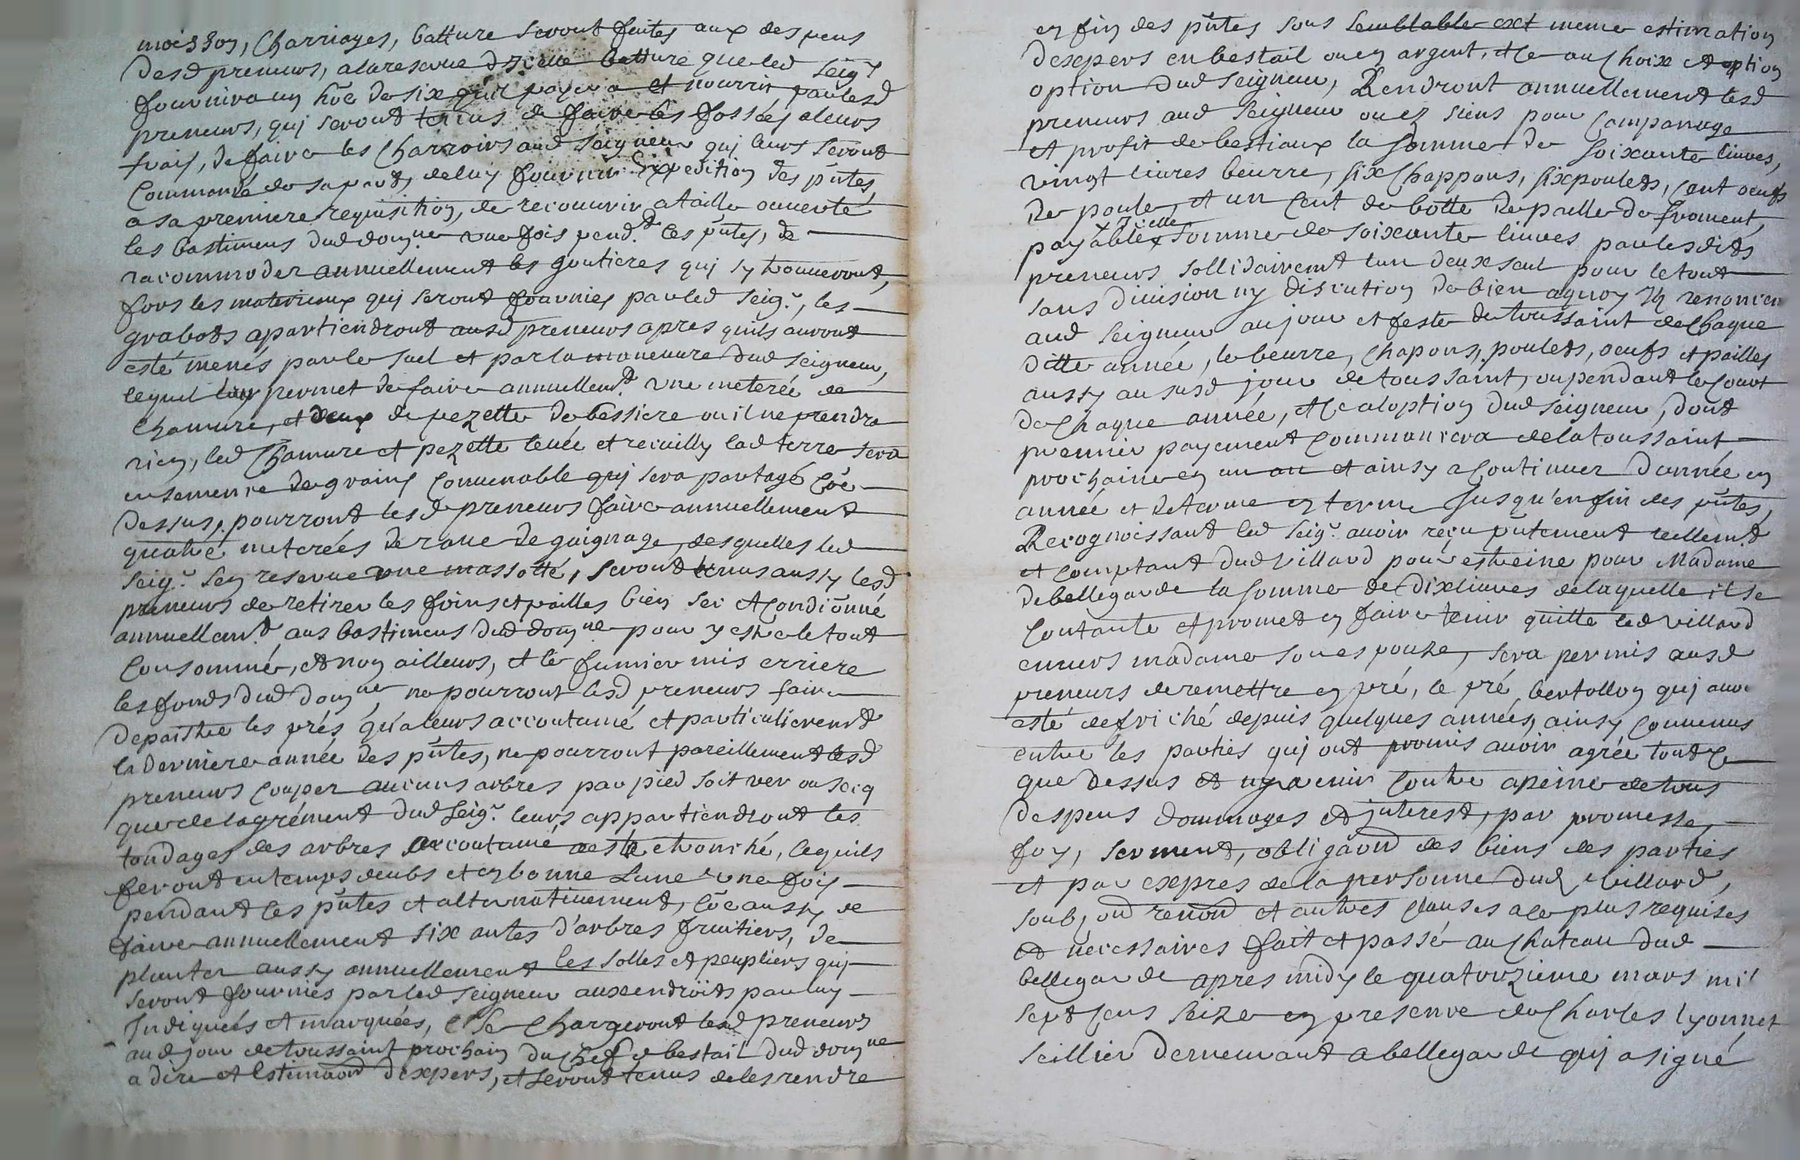 moisson, Charriages, batture seront faites aux despens
desd preneurs, a la reserve d'icelle batture que led Seigr
fournira un hôe de six qu'il payera et nourrir par lesd
preneurs, qui seront tenus de faire les fossés a leurs
frais, de faire les Charroirs aud Seigneur qui leurs seront
Commandé de sa part, de luy fournir Expedition des pntes,
a sa premiere requisition, de recouvrir a taille ouverte
les bastimens dud domne une fois pendt les pntes, de
racommoder annuellement les goutieres qui sy trouveront,
fors les materiaux qui seront fournies par led Seigr, les
grabots apartiendront ausd preneurs apres quils auront
esté menés par le sael et par la maneuvre dud Seigneur,
lequel leur permet de faire annuellemt une meterée de
Chamure, et deux de pezette de bessiere ou il ne prendra
rien, led Chamure et pezette levée et recuilly lad terre sera
ensemence de grains Convenable qui sera partagé Côe
dessus, pourront lesd preneurs faire annuellement
quatre meterées de rave de gaignage, desquelles led
Seigr sen reserve une massotte, seront tenus aussy lesd
preneurs de retirer les foins et pailles bien sec et Condionné
annuellemt aus bastimens dud domne pour y estre le tout
Consommé, et non ailleurs, et le fumier mis erriere
les fonds dud domne, ne pourront lesd preneurs faire
depaistre les prés qu'a leurs accoutumé et particulierement
la derniere année des pntes, ne pourront pareillement lesd
preneurs Couper aucuns arbres par pied soit ver ou secq
que de lagrément dud Seigr leurs appartiendront les
tondages des arbres accoutumé a estre tronché, lequels
feront en temps deubs et en bonne Lune une fois
pendant les pntes et alternativement, Côe aussy de
faire annuellement six antes d'arbres fruitiers, de
planter aussy annuellement les solles et peupliers qui
seront fournies par led Seigneur aux endroits par luy
Indiqués et marquées, et se Chargeront lesd preneurs
aud jour de toussaint prochain du Chef de bestail dud domne
a dire et Estimaõn d'expers, et seront tenus de les rendre
en fin des pntes sous semblable ext meme estimation
d'expers en bestail ou en argent, et ce au Choix et option
option dud Seigneur, Rendront annuellement lesd
preneurs aud Seigneur ou ez siens pour Companage
et profit de bestiaux la somme de soixante livres,
vingt livres beurre, six Chappons, six poulets, cent oeufs
de poule, et un Cent de botte de paille de froment,
payable Icelle somme de soixante livres par lesdits
preneurs sollidairement lun deux seul pour le tout
sans division ny discution de bien a quoy Ils renoncent
aud Seigneur au jour et feste de toussaint de Chaque
ditte année, le beurre, Chapons, poulets, oeufs et pailles
aussy au susd jour de toussaint, ou pendant le Court
de Chaque année, et ce a loption dud Seigneur, dont
premier payement Commancera de la toussaint
prochaine en un an et ainsy a Continuer d'année en
année et de terme en terme Jusqu'en fin des pntes,
Recognoissant led Seigr avoir reçu pntement reellemt
et Comptant dud Villard pour estreine pour Madame
de bellegarde la somme de dix livres de laquelle il se
Contante et promet en faire tenir quitte led Villard
envers madame son espouze, sera permis ausd
preneurs de remettre en pré, le pré bertollon qui avoit
esté defriché depuis quelques années, ainsy Convenus
entre les parties qui ont promis avoir agrée tout Ce
que dessus et ny venir Contre a peine de tous
despens dommages et interest, par promesse,
foy, serment, obligaõn des biens des parties
et par expres de la personne dud Villard,
soub, on renonõ et autres Clauses a ce plus requises
et necessaires fait et passé au Chateau dud
bellegarde apres midy le quatorzieme mars mil
sept Cens seize en presence de Charles lyonnet
seillier demeurant a bellegarde qui a signé